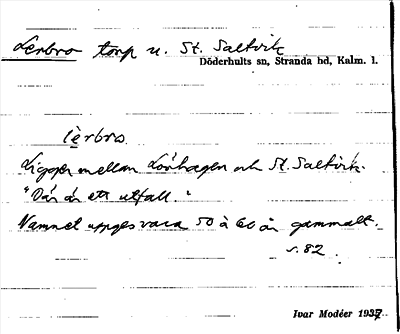 Lerbro torp u. St. Saltvik
Döderhults sn, Stranda hd, Kalm. l.
lèrbro
Ligger mellan Lönhagen och St. Saltvik.
"Där är ett utfall."
Namnet uppges vara 50 à 60 år gammalt.
s. 82.
Ivar Modéer 1937.